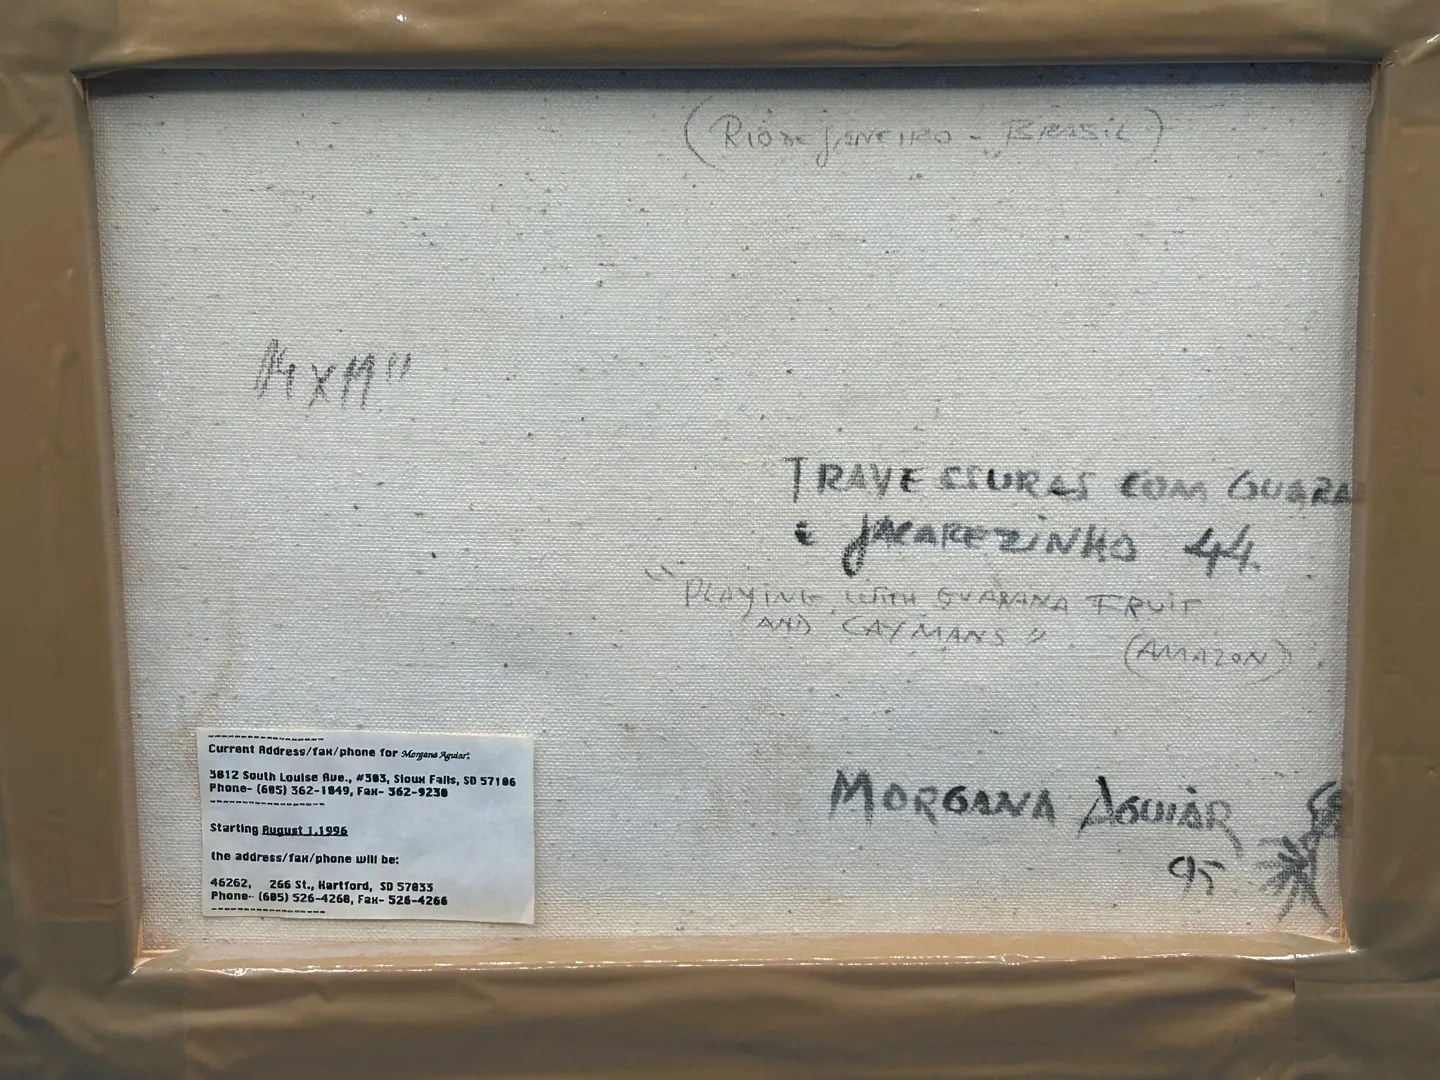 (RIO DE JANEIRO - BRASIL)
TRAVESSURAS COM GUARA
E JACAREZINHO 44.
"PLAYING WITH GUARANA FRUIT
AND CAYMANS"
(AMAZON)
MORGANA AGUIAR
95
Current Address/fax/phone for Morgana Aguiar:
3812 South Louise Ave., #303, Sioux Falls, SD 57106
Phone- (605) 362-1849, Fax- 362-9230
Starting August 1,1996
the address/fax/phone will be:
46262, 266 St., Hartford, SD 57033
Phone- (605) 526-4260, Fax- 526-4266